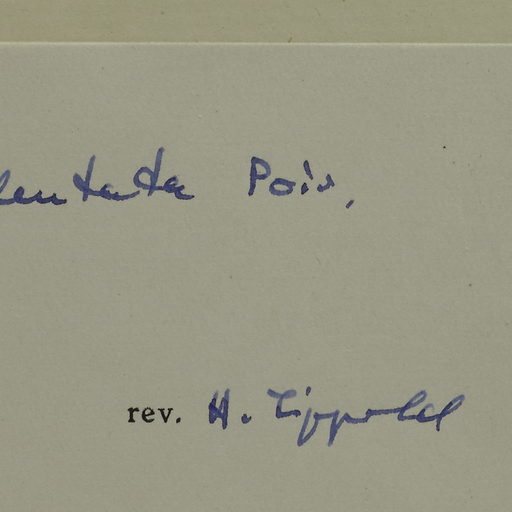 dentata Poir,
rev. H. Lippold